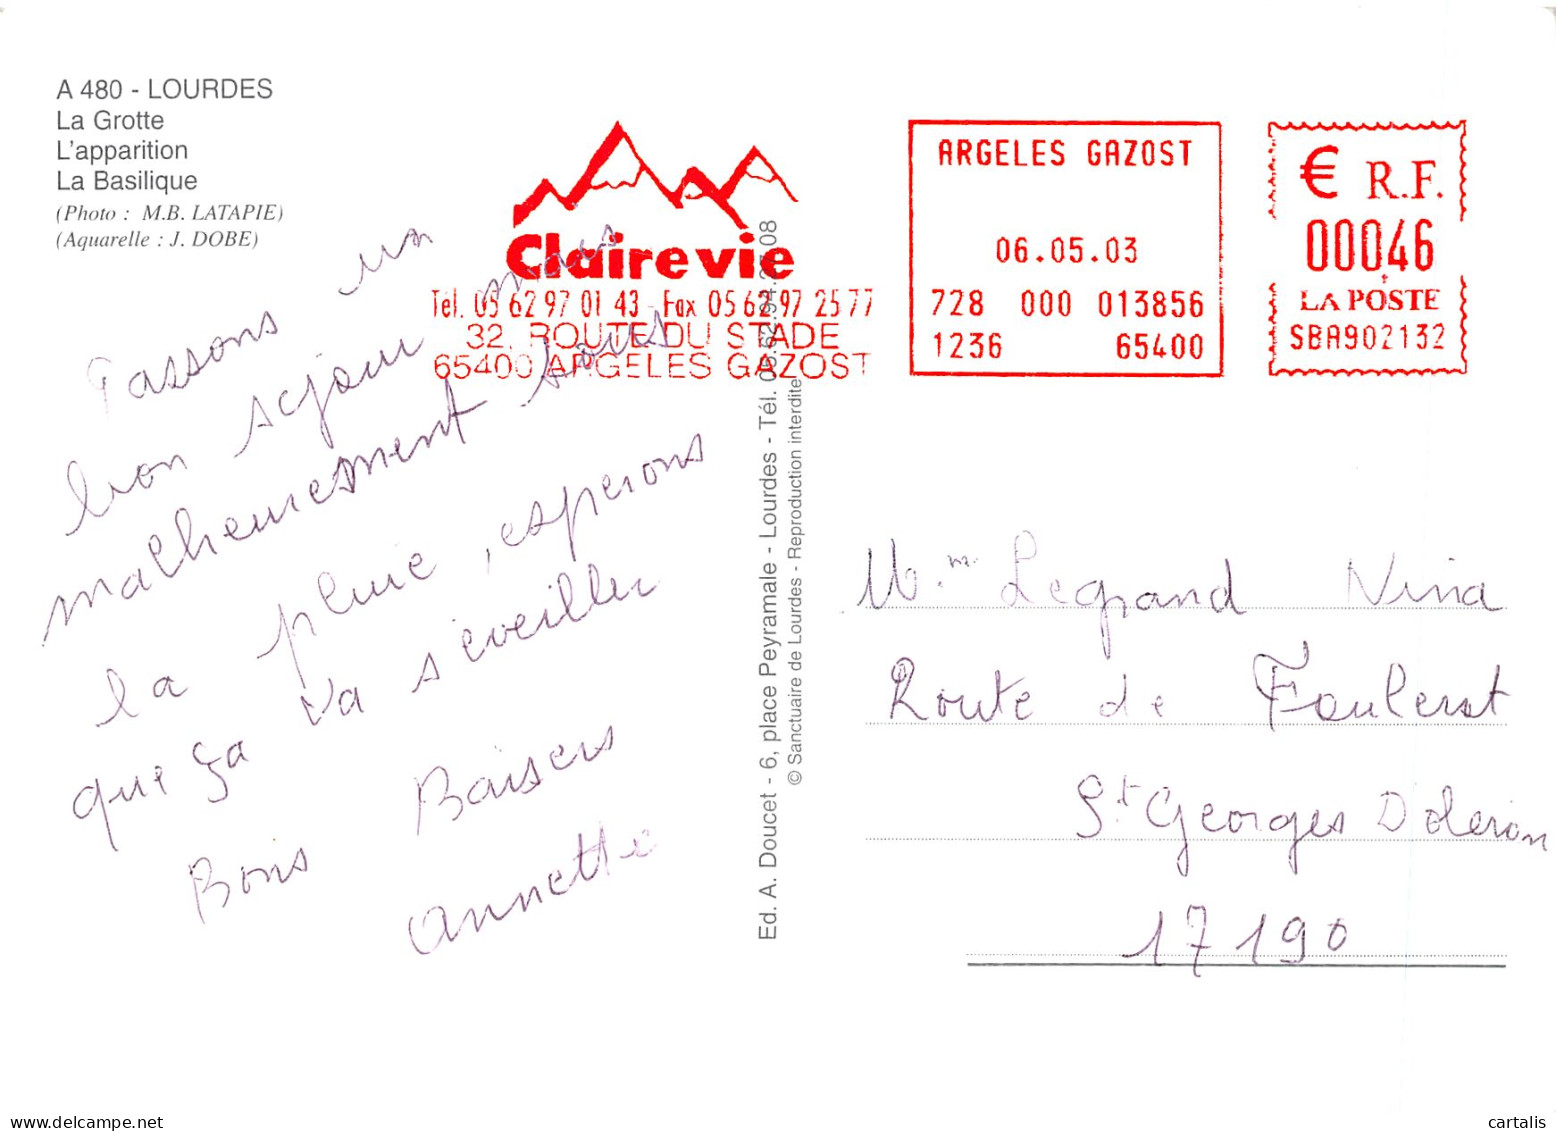 A 480 - LOURDES
La Grotte
L'apparition
La Basilique
(Photo : M.B. LATAPIE)
(Aquarelle : J. DOBE)
Clairevie
Tél. 05 62 97 01 43 - Fax 05 62 97 25 77
32, ROUTE DU STADE
65400 ARGELES GAZOST
ARGELES GAZOST
06.05.03
728 000 013856
1236 65400
€ R.F.
00046
LA POSTE
SBA902132
Passons un
bon séjour mais
malheureusement sous
la pluie, esperons
que ça va s'éveiller
Bons Baisers
Annette
Ed. A. Doucet - 6, place Peyramale - Lourdes - Tél. 05.62.94.27.08
© Sanctuaire de Lourdes - Reproduction interdite
Mme Legrand Nina
Route de Foulerot
St Georges D oleron
17190
delcampe.net
cartalis